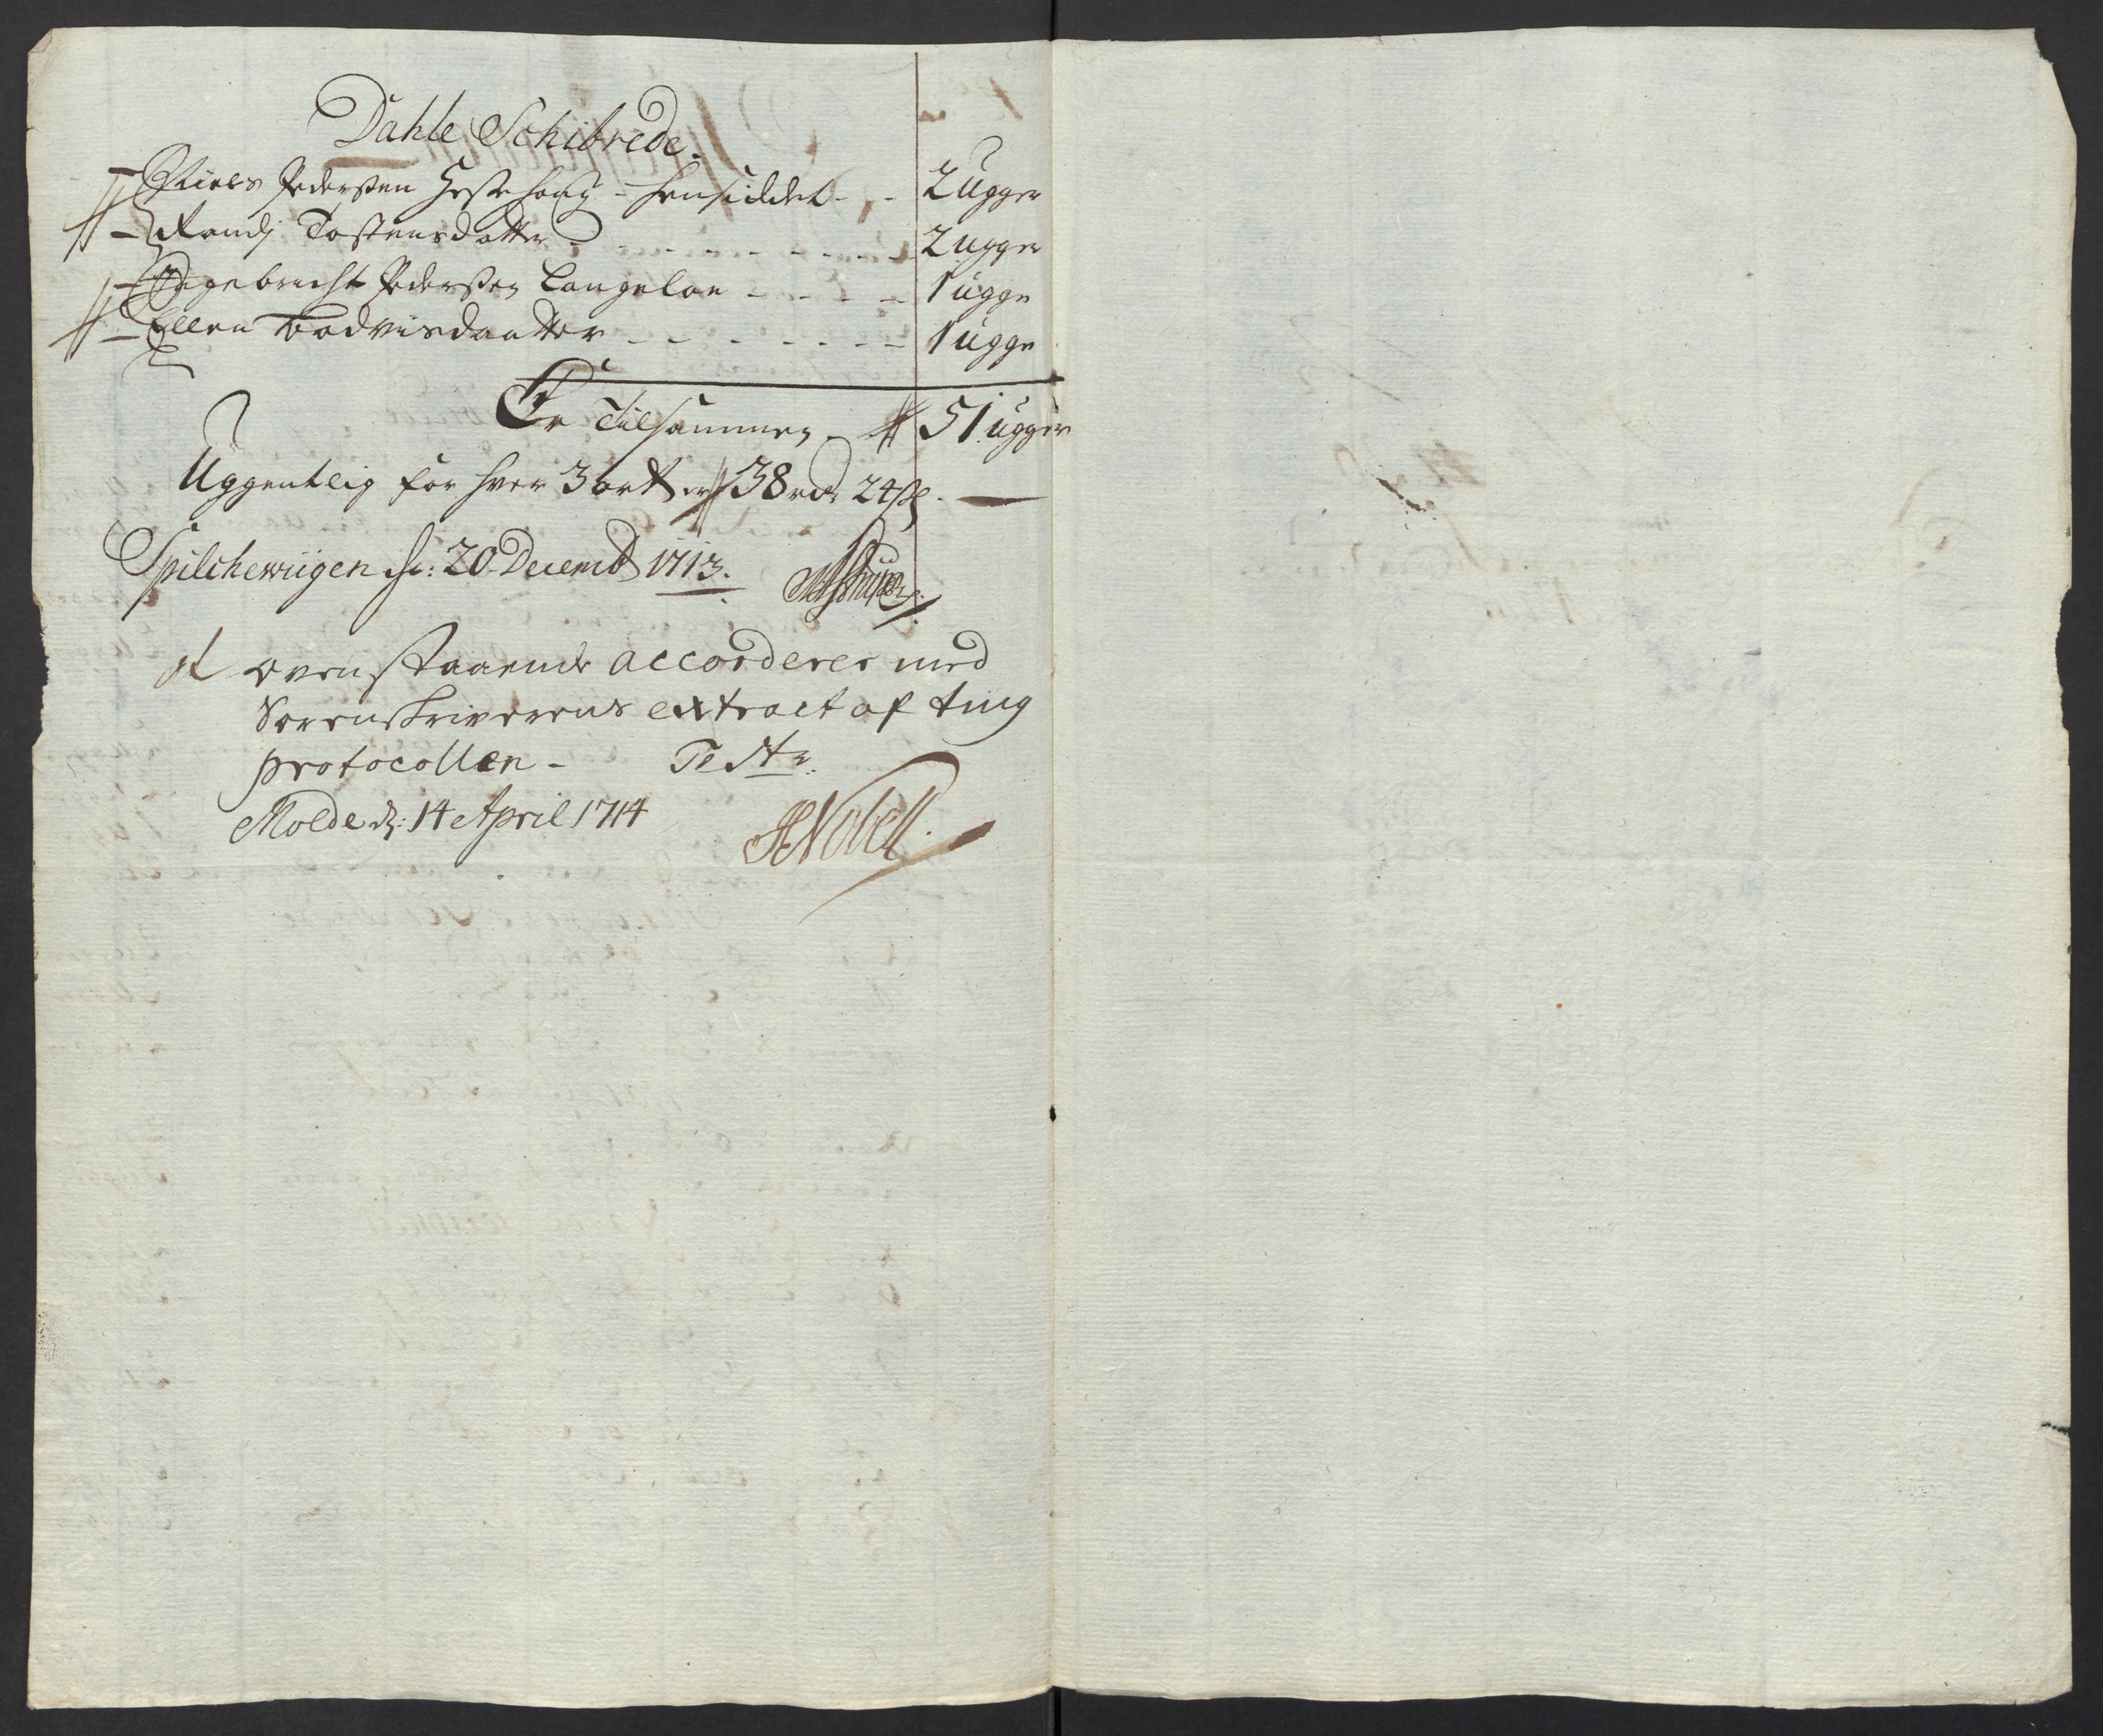 Dahle Schibrede.
Niels Pedersen Hestehoug - hensiddet - - 2 Ugger
Randj Tostensdotter - - - - - - 2 ugger
Ingebricht Pedersen Langeloe - - - - 1 ugge
Ellen Bodvisdaatter - - - - - - - 1 ugge
Er Tilsammen - 51 ugger
Uggentlig for hver 3 ort er 38 rdr 24 s. —
Spilchewiigen d: 20 Decemb 1713.
At ovenstaaende accorderer med
Sorenskriverens extract af ting
protocollen - Teste
Molde d: 14 April 1714
HNobell.